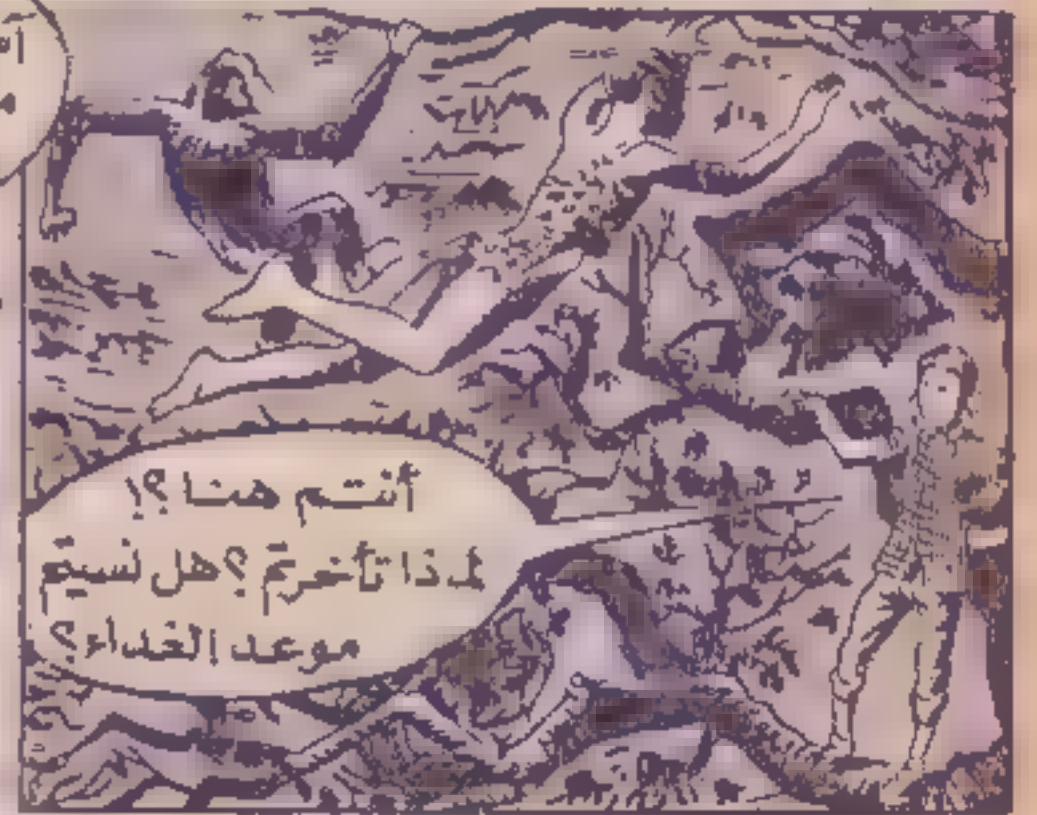 أنتم هنا؟!
لمذا تأخرتم؟ هل نسيتم
موعد الغداء؟